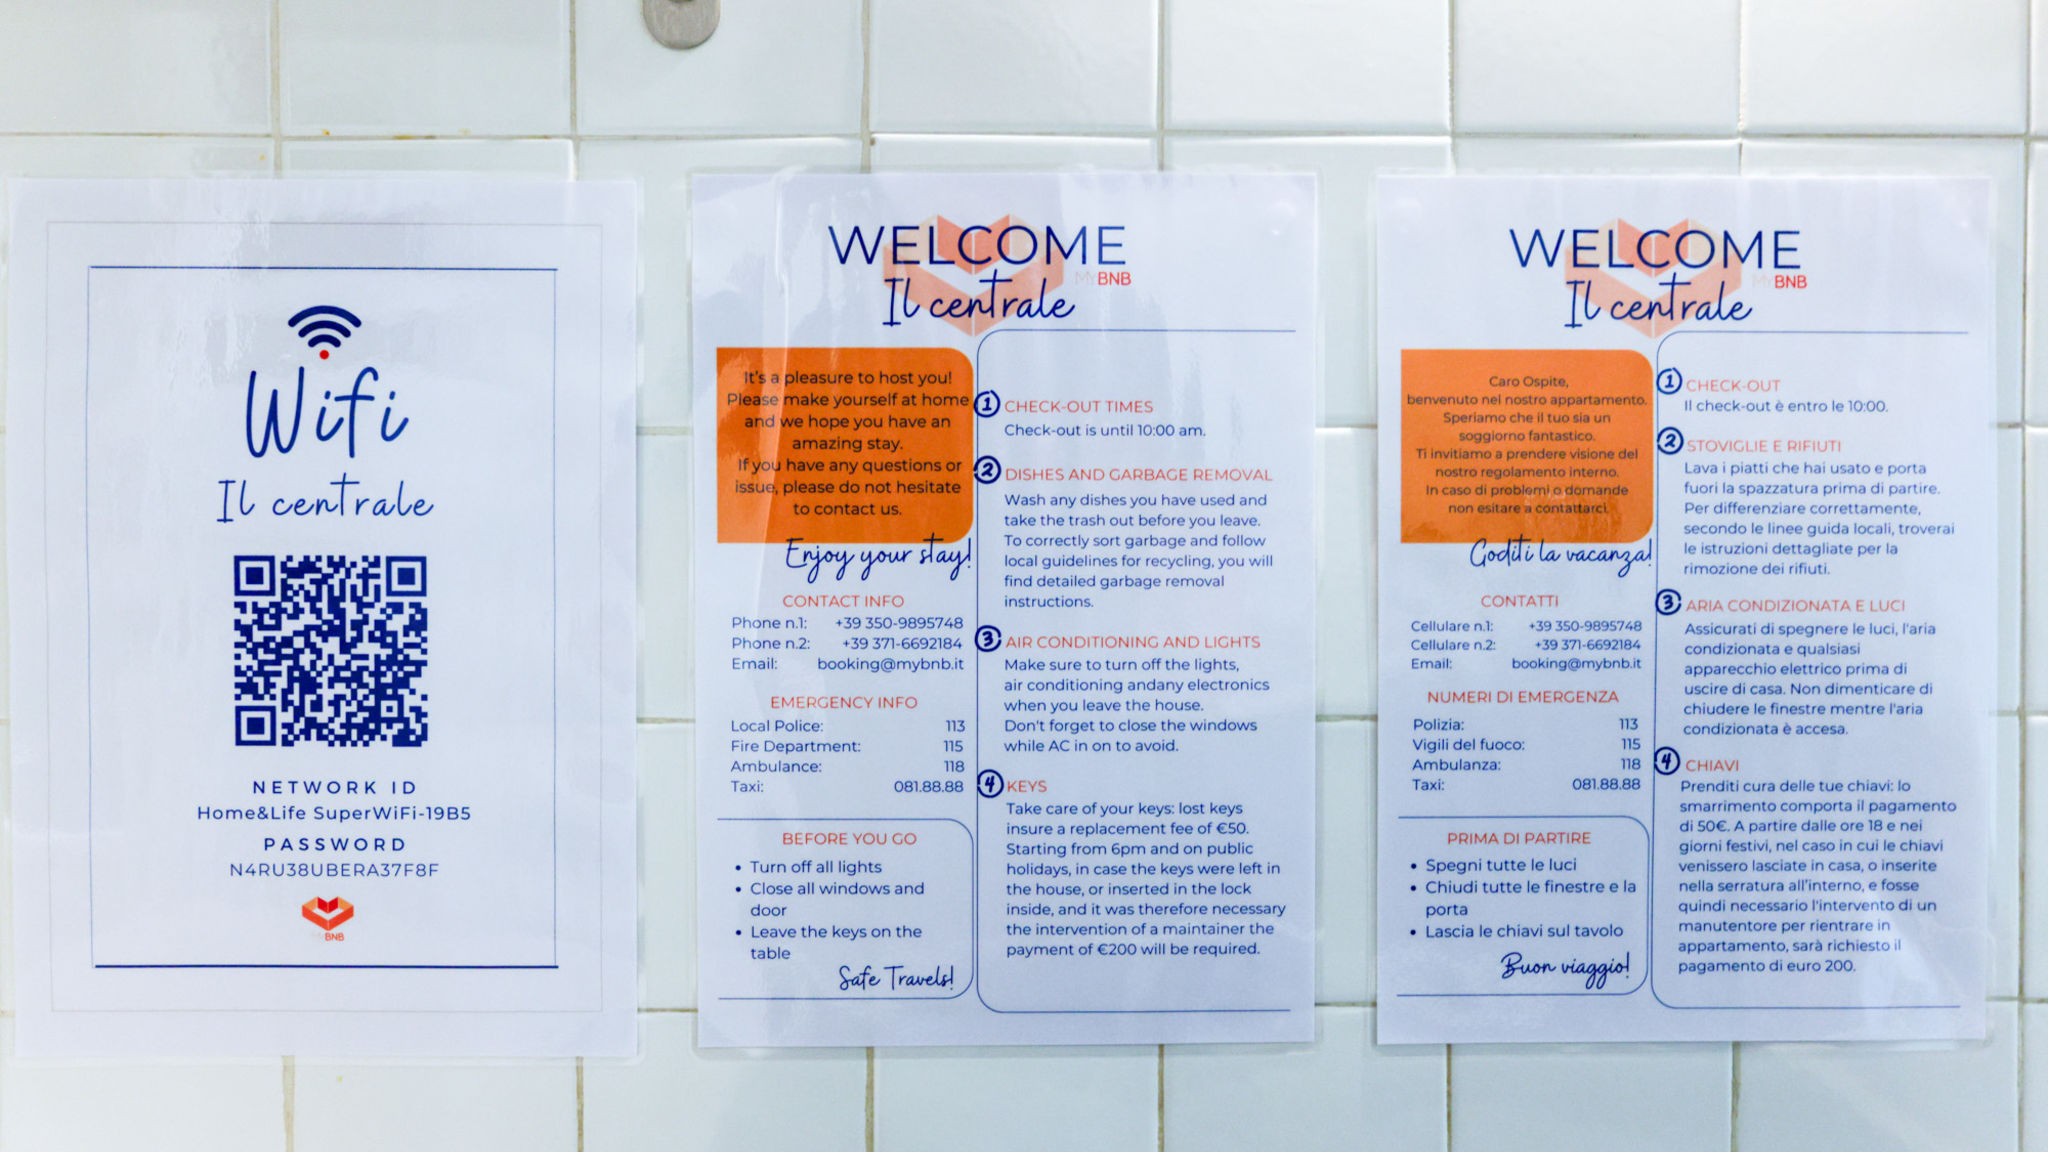 Wifi
Il centrale
NETWORK ID
Home&Life SuperWiFi-19B5
PASSWORD
N4RU38UBERA37F8F
MYBNB
WELCOME
MYBNB
Il centrale
It's a pleasure to host you!
Please make yourself at home
and we hope you have an
amazing stay.
If you have any questions or
issue, please do not hesitate
to contact us.
Enjoy your stay!
CONTACT INFO
Phone n.1: +39 350-9895748
Phone n.2: +39 371-6692184
Email: booking@mybnb.it
EMERGENCY INFO
Local Police: 113
Fire Department: 115
Ambulance: 118
Taxi: 081.88.88
BEFORE YOU GO
• Turn off all lights
• Close all windows and
door
• Leave the keys on the
table
Safe Travels!
1 CHECK-OUT TIMES
Check-out is until 10:00 am.
2 DISHES AND GARBAGE REMOVAL
Wash any dishes you have used and
take the trash out before you leave.
To correctly sort garbage and follow
local guidelines for recycling, you will
find detailed garbage removal
instructions.
3 AIR CONDITIONING AND LIGHTS
Make sure to turn off the lights,
air conditioning andany electronics
when you leave the house.
Don't forget to close the windows
while AC in on to avoid.
4 KEYS
Take care of your keys: lost keys
insure a replacement fee of €50.
Starting from 6pm and on public
holidays, in case the keys were left in
the house, or inserted in the lock
inside, and it was therefore necessary
the intervention of a maintainer the
payment of €200 will be required.
WELCOME
MYBNB
Il centrale
Caro Ospite,
benvenuto nel nostro appartamento.
Speriamo che il tuo sia un
soggiorno fantastico.
Ti invitiamo a prendere visione del
nostro regolamento interno.
In caso di problemi o domande
non esitare a contattarci.
Goditi la vacanza!
CONTATTI
Cellulare n.1: +39 350-9895748
Cellulare n.2: +39 371-6692184
Email: booking@mybnb.it
NUMERI DI EMERGENZA
Polizia: 113
Vigili del fuoco: 115
Ambulanza: 118
Taxi: 081.88.88
PRIMA DI PARTIRE
• Spegni tutte le luci
• Chiudi tutte le finestre e la
porta
• Lascia le chiavi sul tavolo
Buon viaggio!
1 CHECK-OUT
Il check-out è entro le 10:00.
2 STOVIGLIE E RIFIUTI
Lava i piatti che hai usato e porta
fuori la spazzatura prima di partire.
Per differenziare correttamente,
secondo le linee guida locali, troverai
le istruzioni dettagliate per la
rimozione dei rifiuti.
3 ARIA CONDIZIONATA E LUCI
Assicurati di spegnere le luci, l'aria
condizionata e qualsiasi
apparecchio elettrico prima di
uscire di casa. Non dimenticare di
chiudere le finestre mentre l'aria
condizionata è accesa.
4 CHIAVI
Prenditi cura delle tue chiavi: lo
smarrimento comporta il pagamento
di 50€. A partire dalle ore 18 e nei
giorni festivi, nel caso in cui le chiavi
venissero lasciate in casa, o inserite
nella serratura all'interno, e fosse
quindi necessario l'intervento di un
manutentore per rientrare in
appartamento, sarà richiesto il
pagamento di euro 200.